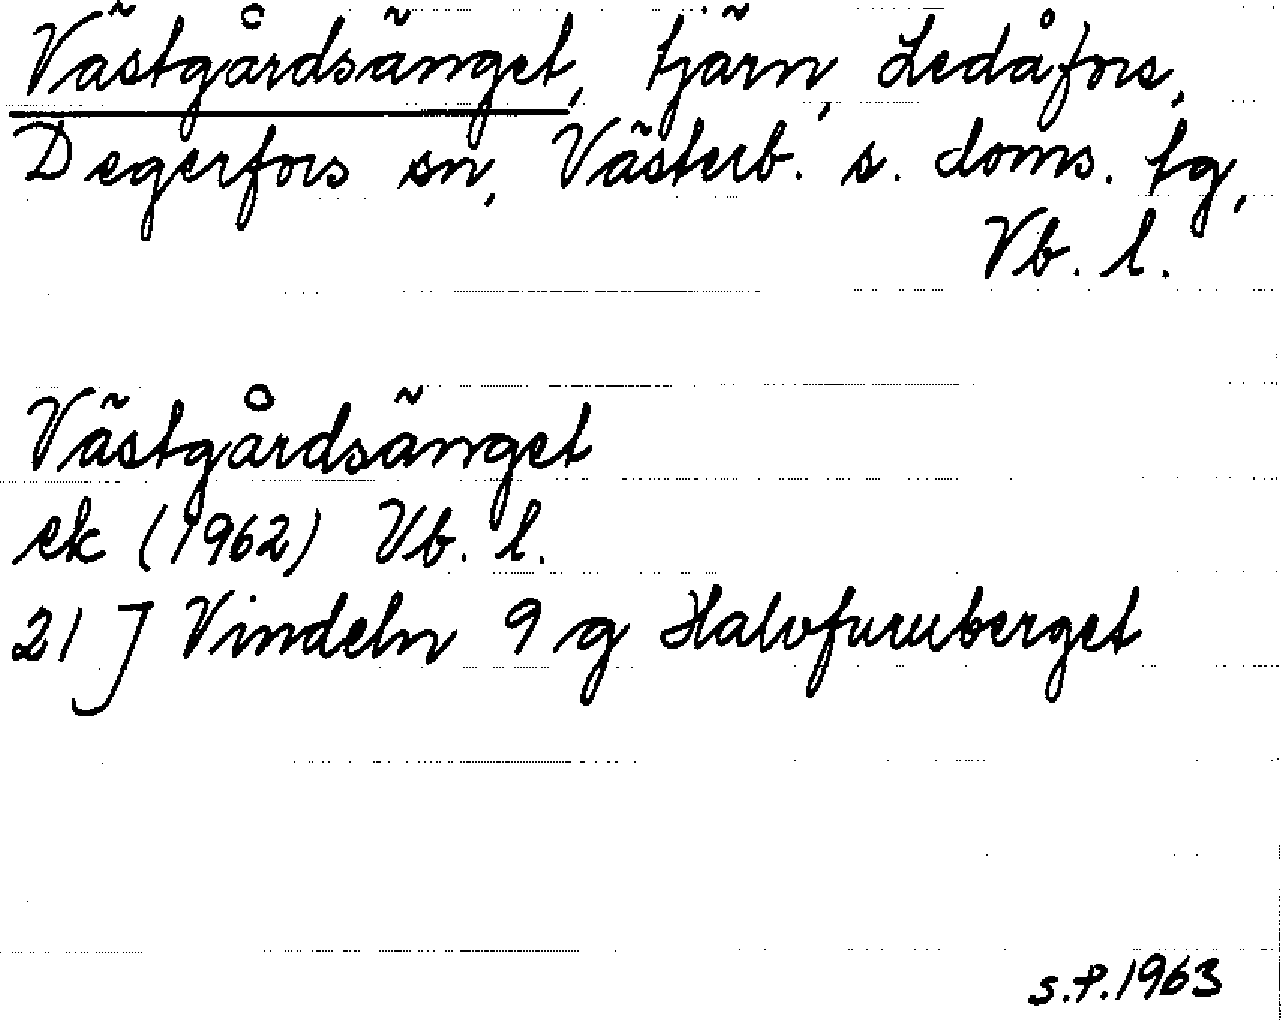 Västgårdsänget, tjärn, Ledåfors,
Degerfors sn, Västerb. s. doms. tg,
Vb. l.
Västgårdsänget
ek (1962) Vb. l.
21 J Vindeln 9 g Halvfuruberget
s.P.1963